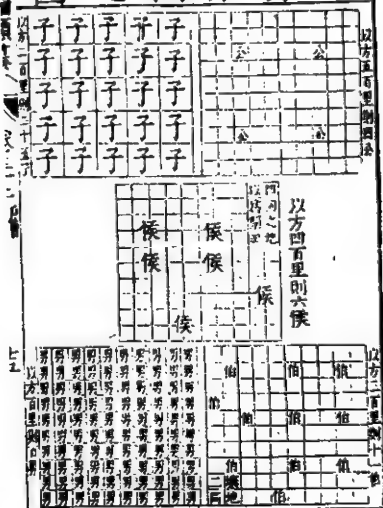 以方五百里則四公
公 公
公 公
子 子 子 子 子
子 子 子 子 子
子 子 子 子 子
子 子 子 子 子
子 子 子 子 子
以方二百里則二十五子
以方四百里則六侯
四同之地
侯 侯
侯 侯
侯
侯
以方三百里則十一伯
伯 伯 伯
伯
伯 伯 伯
伯 伯 伯
伯
男 男 男 男 男 男 男 男 男 男
男 男 男 男 男 男 男 男 男 男
男 男 男 男 男 男 男 男 男 男
男 男 男 男 男 男 男 男 男 男
男 男 男 男 男 男 男 男 男 男
男 男 男 男 男 男 男 男 男 男
男 男 男 男 男 男 男 男 男 男
男 男 男 男 男 男 男 男 男 男
男 男 男 男 男 男 男 男 男 男
男 男 男 男 男 男 男 男 男 男
以方百里則百男